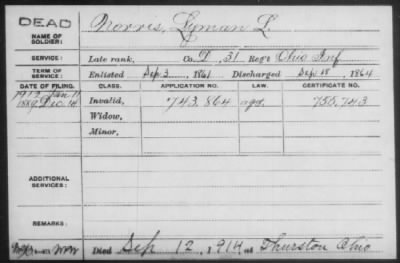 DEAD
NAME OF SOLDIER: Norris, Lyman L.
SERVICE: Late rank, Co. D, 31 Reg't Ohio Inf
TERM OF SERVICE: Enlisted Sep. 3, 1861 Discharged Sep 18, 1864
DATE OF FILING. CLASS. APPLICATION NO. LAW. CERTIFICATE NO.
1912 Jan 11
1889 Dec. 14 Invalid, 743,864 755,743
Widow,
Minor,
ADDITIONAL SERVICES:
REMARKS:
Died Sep 12, 1914 at Thurston Ohio